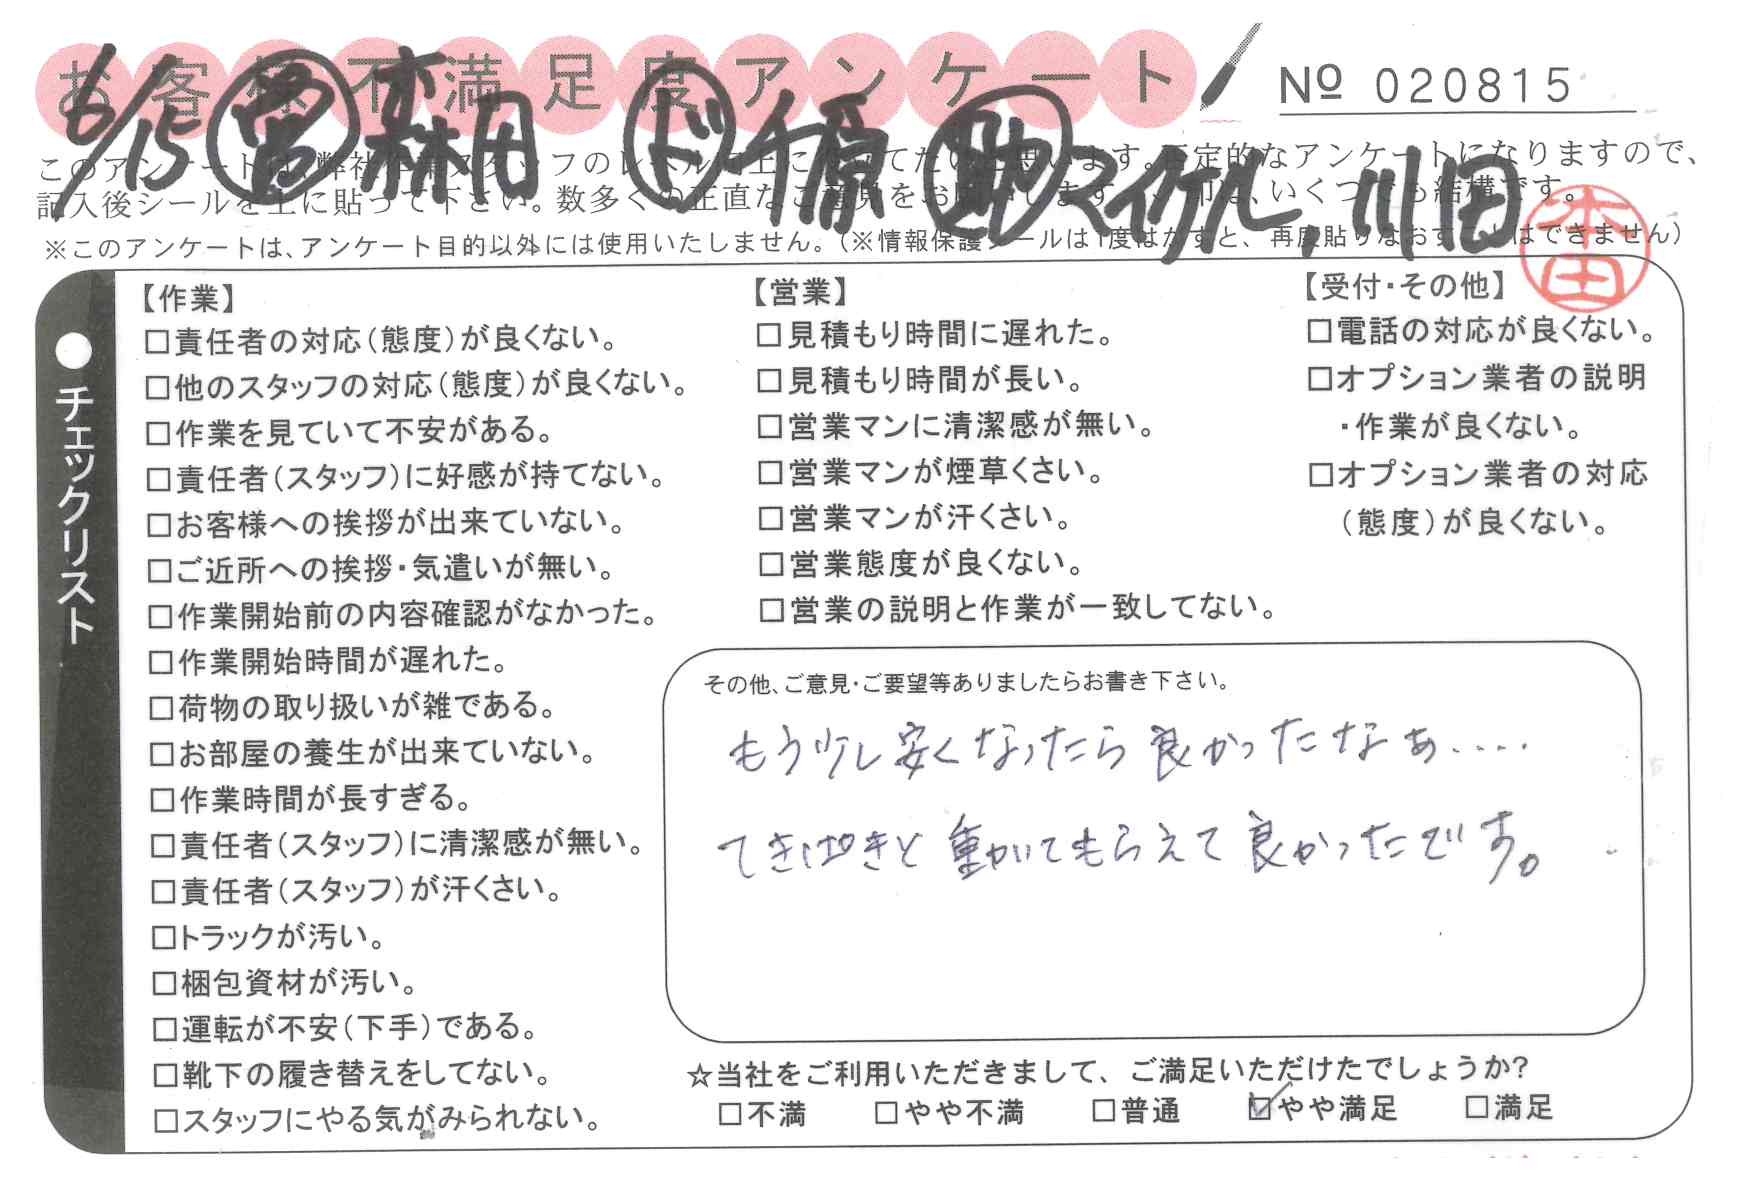 お客様不満足度アンケート
№ 020815
6/15 営 森田 ド 千原 助 マイケル, 川田
本田
このアンケートは、弊社作業スタッフのレベル向上に役立てたいと思います。否定的なアンケートになりますので、
記入後シールを上に貼って下さい。数多くの正直なご意見をお願いします。レ印は、いくつでも結構です。
※このアンケートは、アンケート目的以外には使用いたしません。(※情報保護シールは1度はがすと、再度貼りなおすことはできません)
●チェックリスト
【作業】
□責任者の対応(態度)が良くない。
□他のスタッフの対応(態度)が良くない。
□作業を見ていて不安がある。
□責任者(スタッフ)に好感が持てない。
□お客様への挨拶が出来ていない。
□ご近所への挨拶・気遣いが無い。
□作業開始前の内容確認がなかった。
□作業開始時間が遅れた。
□荷物の取り扱いが雑である。
□お部屋の養生が出来ていない。
□作業時間が長すぎる。
□責任者(スタッフ)に清潔感が無い。
□責任者(スタッフ)が汗くさい。
□トラックが汚い。
□梱包資材が汚い。
□運転が不安(下手)である。
□靴下の履き替えをしてない。
□スタッフにやる気がみられない。
【営業】
□見積もり時間に遅れた。
□見積もり時間が長い。
□営業マンに清潔感が無い。
□営業マンが煙草くさい。
□営業マンが汗くさい。
□営業態度が良くない。
□営業の説明と作業が一致してない。
【受付・その他】
□電話の対応が良くない。
□オプション業者の説明
・作業が良くない。
□オプション業者の対応
(態度)が良くない。
その他、ご意見・ご要望等ありましたらお書き下さい。
もう少し安くなったら良かったなぁ‥‥
てきぱきと動いてもらえて良かったです。
☆当社をご利用いただきまして、ご満足いただけたでしょうか?
□不満 □やや不満 □普通 ☑やや満足 □満足